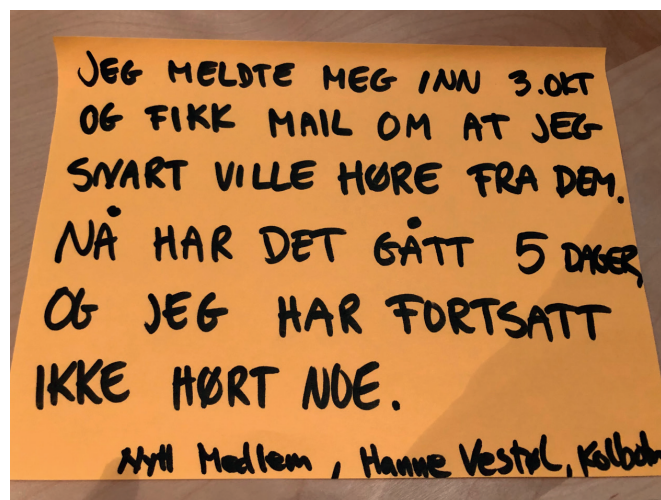 JEG MELDTE MEG INN 3.OKT
OG FIKK MAIL OM AT JEG
SNART VILLE HØRE FRA DEM.
NÅ HAR DET GÅTT 5 DAGER,
OG JEG HAR FORTSATT
IKKE HØRT NOE.
Nytt Medlem, Hanne Vestøl,